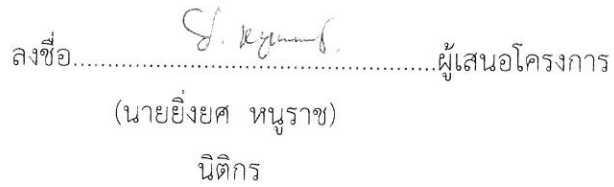 ลงชื่อ................................................ผู้เสนอโครงการ
(นายยิ่งยศ หนูราช)
นิติกร